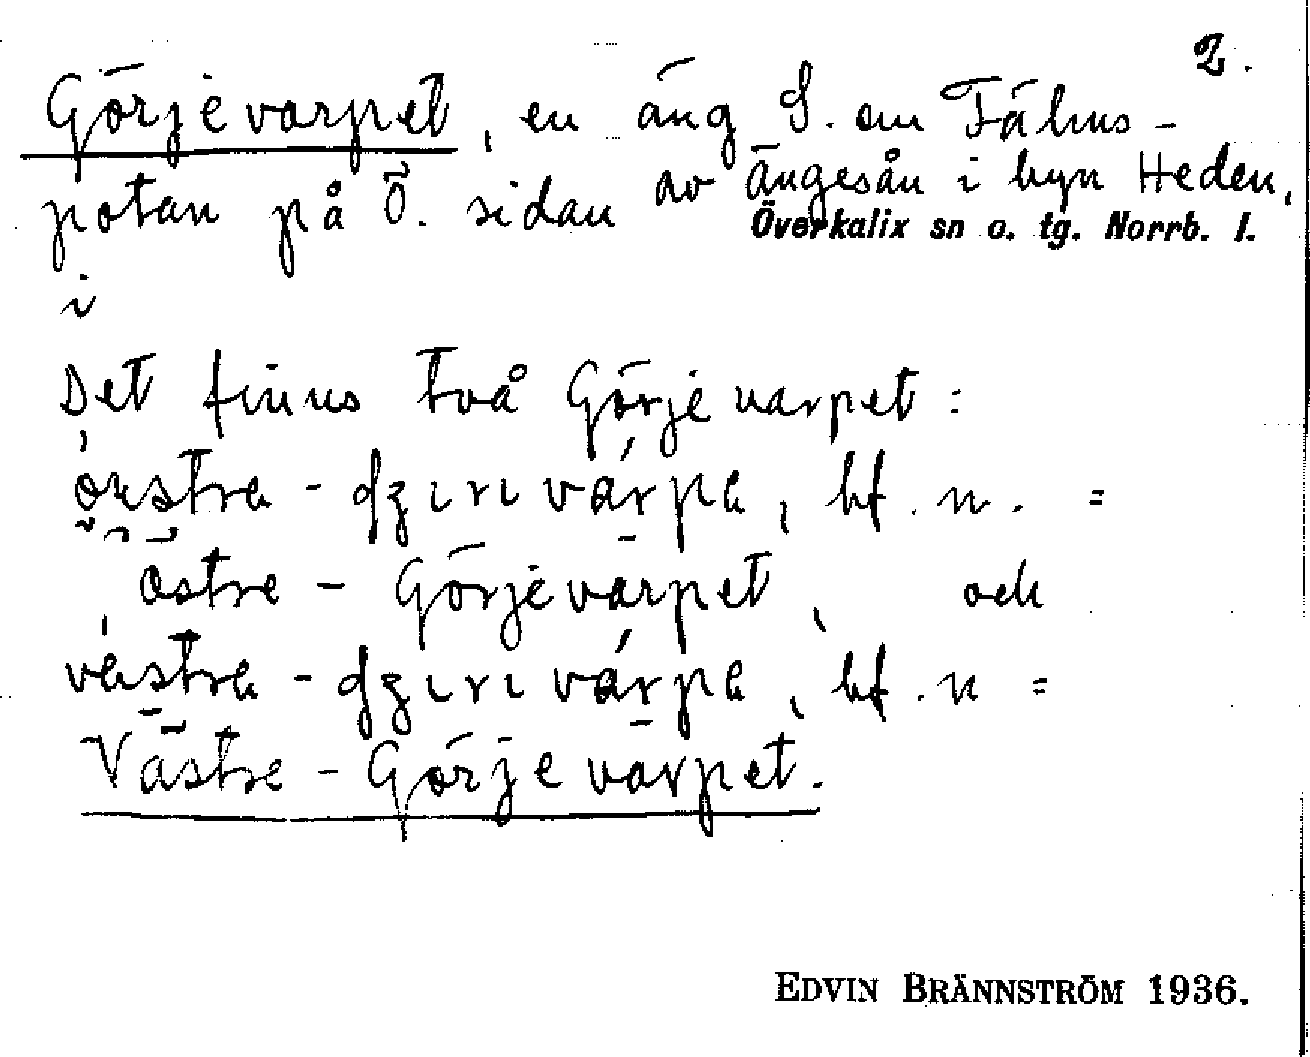 2.
Görjevarpet, en äng S. om Fähus-
potan på Ö. sidan av Ängesån i byn Heden,
Överkalix sn o. tg. Norrb. l.
i
Det finns två Görjevarpet:
bf. n. =
Östre-Görjevarpet, och
bf. n =
Västre-Görjevarpet.
EDVIN BRÄNNSTRÖM 1936.